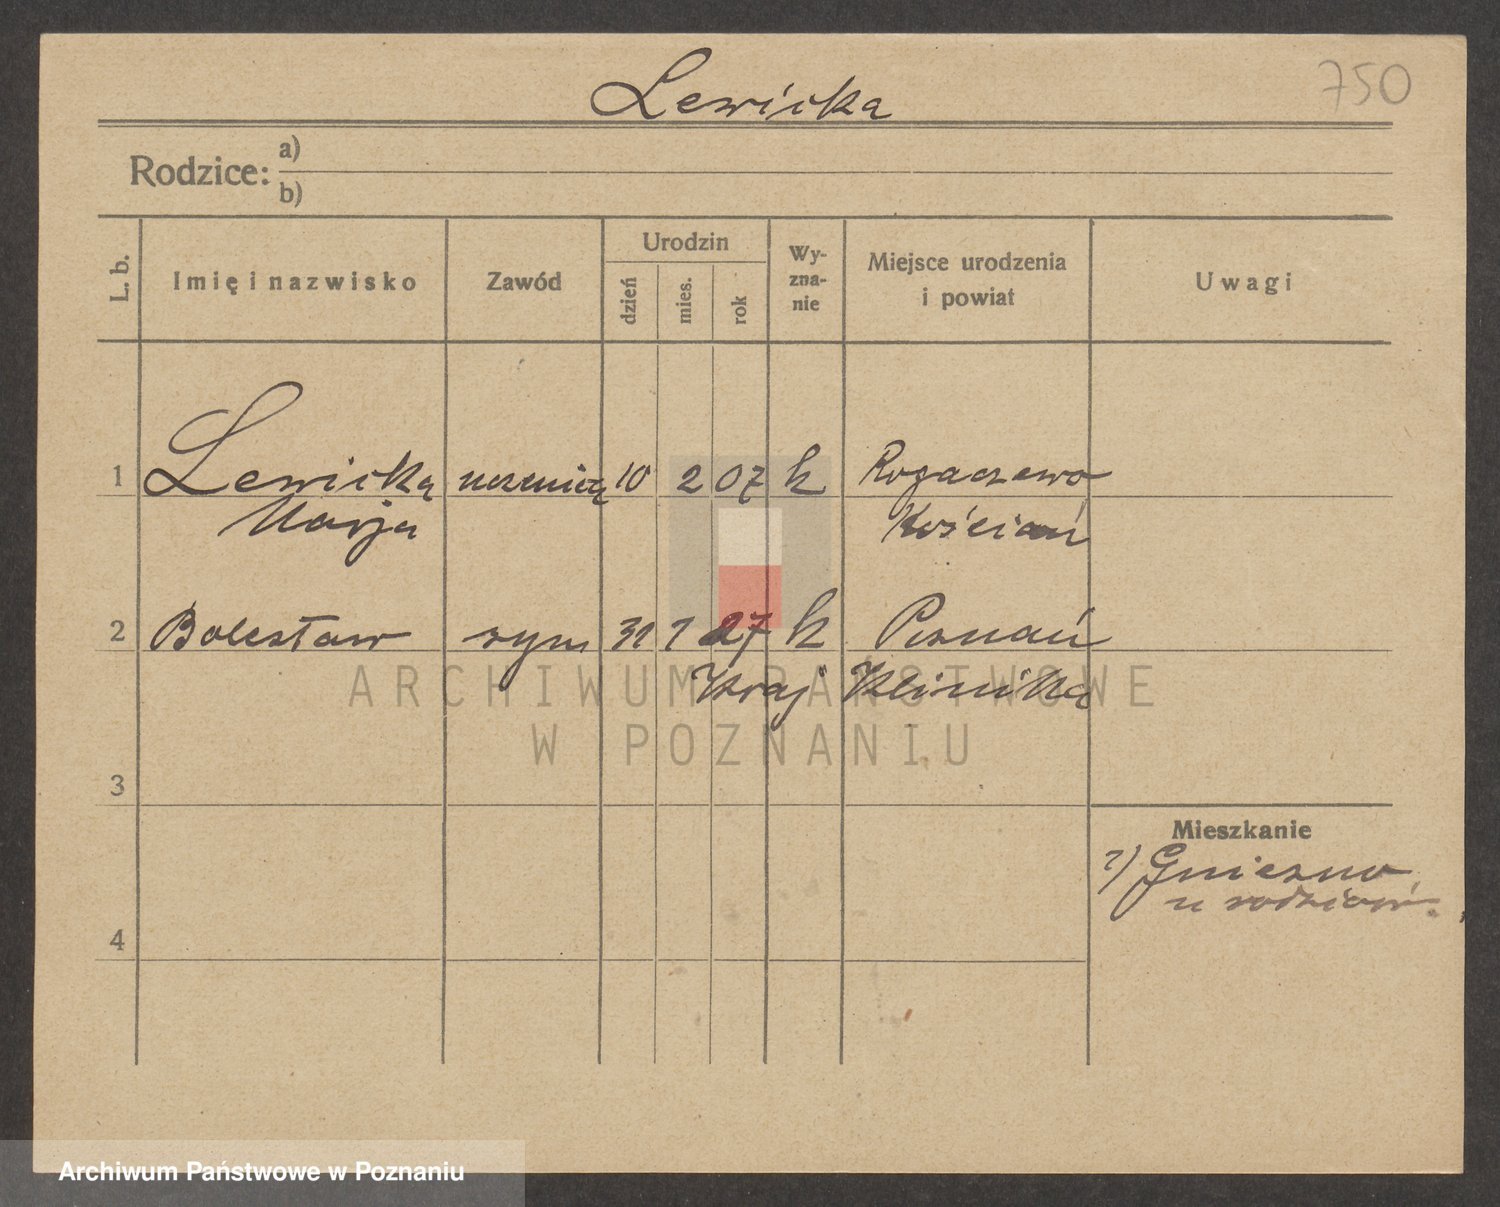 Lewicka
750
Rodzice: a)
b)
L. b.
Imię i nazwisko
Zawód
Urodzin
dzień
mies.
rok
Wy-
zna-
nie
Miejsce urodzenia
i powiat
Uwagi
1 Lewicka uczenica 10 2 07 k Rogaczewo
Marja Kościań
2 Bolesław syn 31 1 27 k Poznań
Kraj Klinika
3
Mieszkanie
2) Gniezno
u rodziców.
4
ARCHIWUM PAŃSTWOWE
W POZNANIU
Archiwum Państwowe w Poznaniu